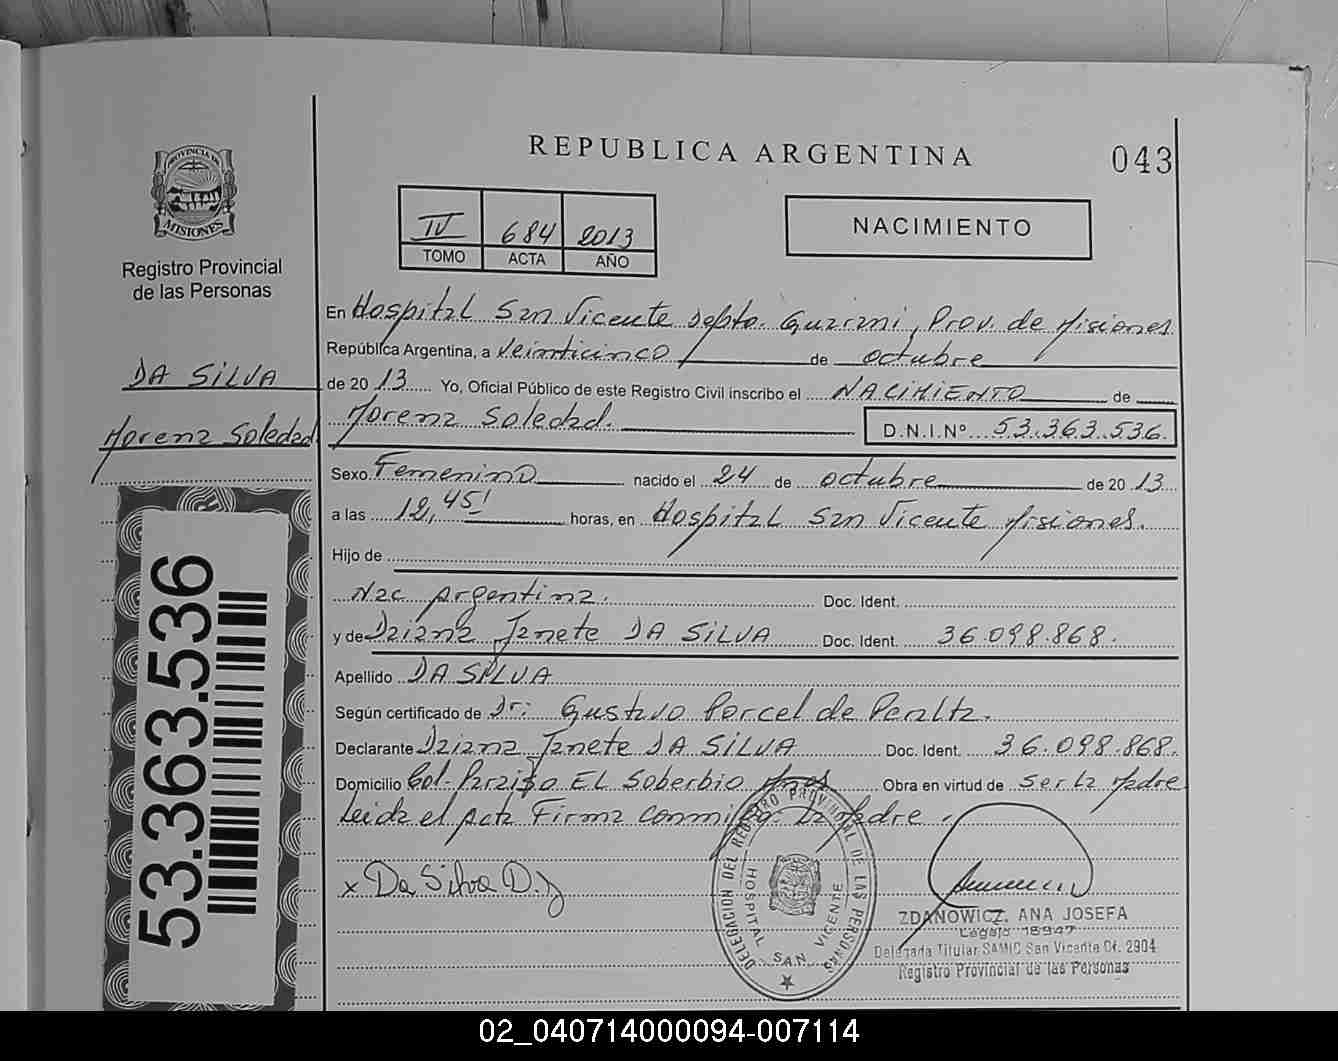 REPUBLICA ARGENTINA
043
PROVINCIA DE
MISIONES
Registro Provincial
de las Personas
IV 684 2013
TOMO ACTA AÑO
NACIMIENTO
En Hospital San Vicente Depto. Guarani, Prov. de Misiones
República Argentina, a Veinticinco de octubre
de 2013 Yo, Oficial Público de este Registro Civil inscribo el NACIMIENTO de
Morena Soledad. D.N.I.Nº 53.363.536.
DA SILVA
Morena Soledad
Sexo Femenino nacido el 24 de octubre de 2013
a las 12,45' horas, en Hospital San Vicente Misiones.
Hijo de
Nac Argentina. Doc. Ident.
y de Daiana Janete DA SILVA Doc. Ident. 36.098.868.
Apellido DA SILVA
Según certificado de Dr: Gustavo Porcel de Peralta.
Declarante Daiana Janete DA SILVA Doc. Ident. 36.098.868.
Domicilio Col. Paraiso EL Soberbio Mnes Obra en virtud de Ser La Madre
Leida el Acta Firma conmigo La Madre.
x Da Silva D. J
53.363.536
DELEGACION DEL REGISTRO PROVINCIAL DE LAS PERSONAS
HOSPITAL SAN VICENTE
ZDANOWICZ, ANA JOSEFA
Legajo 18947
Delegada Titular SAMIC San Vicente Of. 2904
Registro Provincial de las Personas
02_040714000094-007114